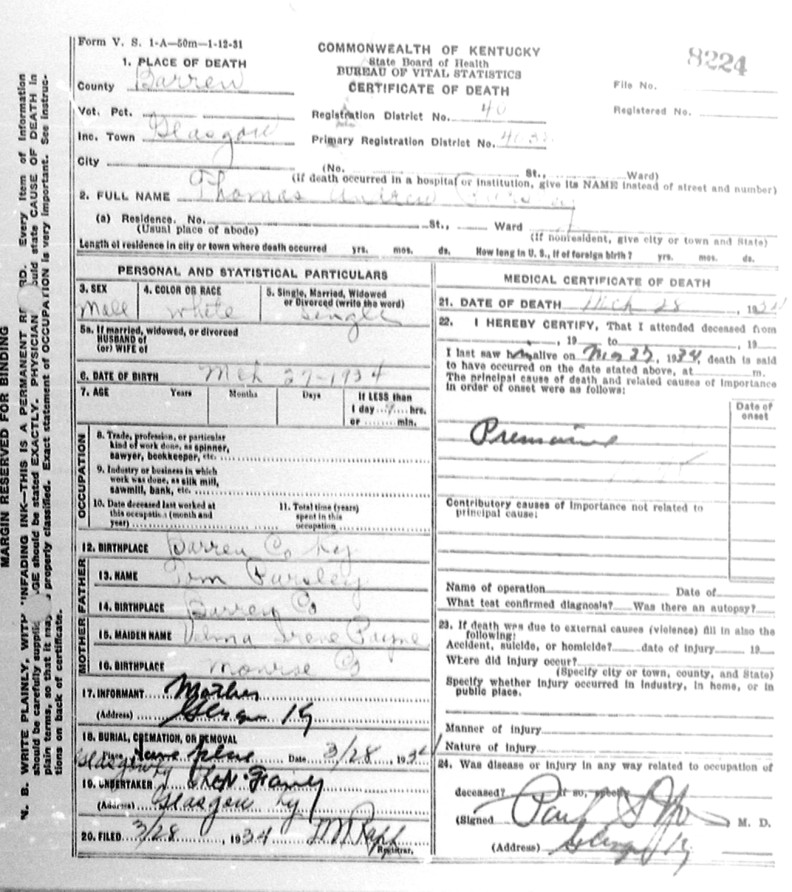 Form V. S. 1-A—50m—1-12-31
COMMONWEALTH OF KENTUCKY
State Board of Health
BUREAU OF VITAL STATISTICS
CERTIFICATE OF DEATH
8224
File No.
Registered No.
1. PLACE OF DEATH
County Barren
Vot. Pct.
Registration District No. 40
Inc. Town Glasgow
Primary Registration District No.
City
(No. St., Ward)
(If death occurred in a hospital or institution, give its NAME instead of street and number)
2. FULL NAME Thomas Andrew
(a) Residence. No. St., Ward
(Usual place of abode)
(If nonresident, give city or town and State)
Length of residence in city or town where death occurred yrs. mos. ds. How long in U. S., if of foreign birth? yrs. mos. ds.
PERSONAL AND STATISTICAL PARTICULARS
3. SEX
Male
4. COLOR OR RACE
White
5. Single, Married, Widowed
or Divorced (write the word)
Single
5a. If married, widowed, or divorced
HUSBAND of
(or) WIFE of
6. DATE OF BIRTH Mch 27-1934
7. AGE Years Months Days If LESS than
1 day hrs.
or min.
OCCUPATION
8. Trade, profession, or particular
kind of work done, as spinner,
sawyer, bookkeeper, etc.
9. Industry or business in which
work was done, as silk mill,
sawmill, bank, etc.
10. Date deceased last worked at
this occupation (month and
year)
11. Total time (years)
spent in this
occupation
12. BIRTHPLACE Barren Co Ky
FATHER
13. NAME Tim Pursley
14. BIRTHPLACE Barren Co
MOTHER
15. MAIDEN NAME Velma Irene Payne
16. BIRTHPLACE Monroe Co
17. INFORMANT Mother
(Address) Ky
18. BURIAL, CREMATION, OR REMOVAL
Place Date 3/28, 1934
19. UNDERTAKER
(Address) Glasgow Ky
20. FILED 3/28, 1934
Registrar.
MEDICAL CERTIFICATE OF DEATH
21. DATE OF DEATH Mch 28, 1934
22. I HEREBY CERTIFY, That I attended deceased from
, 19 to , 19
I last saw h alive on , 1934, death is said
to have occurred on the date stated above, at m.
The principal cause of death and related causes of importance
in order of onset were as follows:
Date of
onset
Contributory causes of importance not related to
principal cause:
Name of operation Date of
What test confirmed diagnosis? Was there an autopsy?
23. If death was due to external causes (violence) fill in also the
following:
Accident, suicide, or homicide? date of injury 19
Where did injury occur?
(Specify city or town, county, and State)
Specify whether injury occurred in industry, in home, or in
public place.
Manner of injury
Nature of injury
24. Was disease or injury in any way related to occupation of
deceased? If so, specify
(Signed Paul M. D.
(Address) Ky
MARGIN RESERVED FOR BINDING
N. B. WRITE PLAINLY, WITH UNFADING INK—THIS IS A PERMANENT RECORD. Every item of information
should be carefully supplied. AGE should be stated EXACTLY. PHYSICIAN should state CAUSE OF DEATH in
plain terms, so that it may properly classified. Exact statement of OCCUPATION is very important. See instruc-
tions on back of certificate.